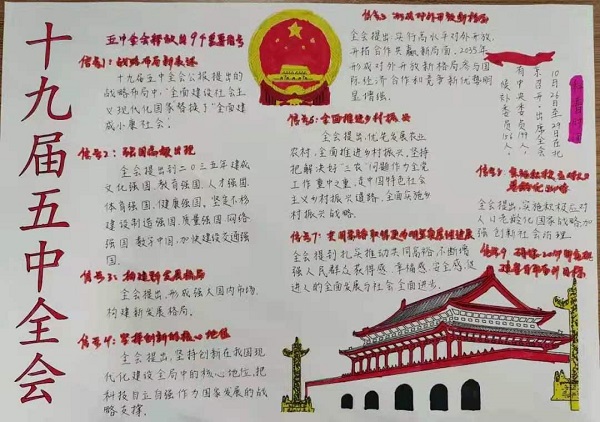 十九届五中全会
五中全会释放的9个重要信号
信号1：战略布局新表述
十九届五中全会公报提出的
战略布局中，“全面建设社会主
义现代化国家替换了“全面建
成小康社会。
信号2：强国高频出现
全会提出到二〇三五年建成
文化强国、教育强国、人才强国、
体育强国、健康强国。坚定不移
建设制造强国、质量强国、网络
强国、数字中国，加快建设交通强
国。
信号3：构建新发展格局
全会提出，形成强大国内市场，
构建新发展格局。
信号4：坚持创新的核心地位
全会提出，坚持创新在我国现
代化建设全局中的核心地位，把
科技自立自强作为国家发展的战
略支撑。
全会提出，实行高水平对外开放，
开拓合作共赢新局面。2035年，
形成对外开放新格局，参与国
际经济合作和竞争新优势明
显增强。
信号6：全面推进乡村振兴
全会提出，优先发展农业
农村，全面推进乡村振兴。坚持
把解决好“三农”问题作为全党
工作重中之重，走中国特色社会
主义乡村振兴道路，全面实施乡
村振兴战略。
信号7：
全会提到扎实推动共同富裕，不断增
强人民群众获得感、幸福感、安全感，促
进人的全面发展与社会全面进步。
10月26日至29日在北
京召开。出席全会
有中央委员198人，
候补委员166人。
全会提出，实施积极应对
人口老龄化国家战略，加
强创新社会治理。